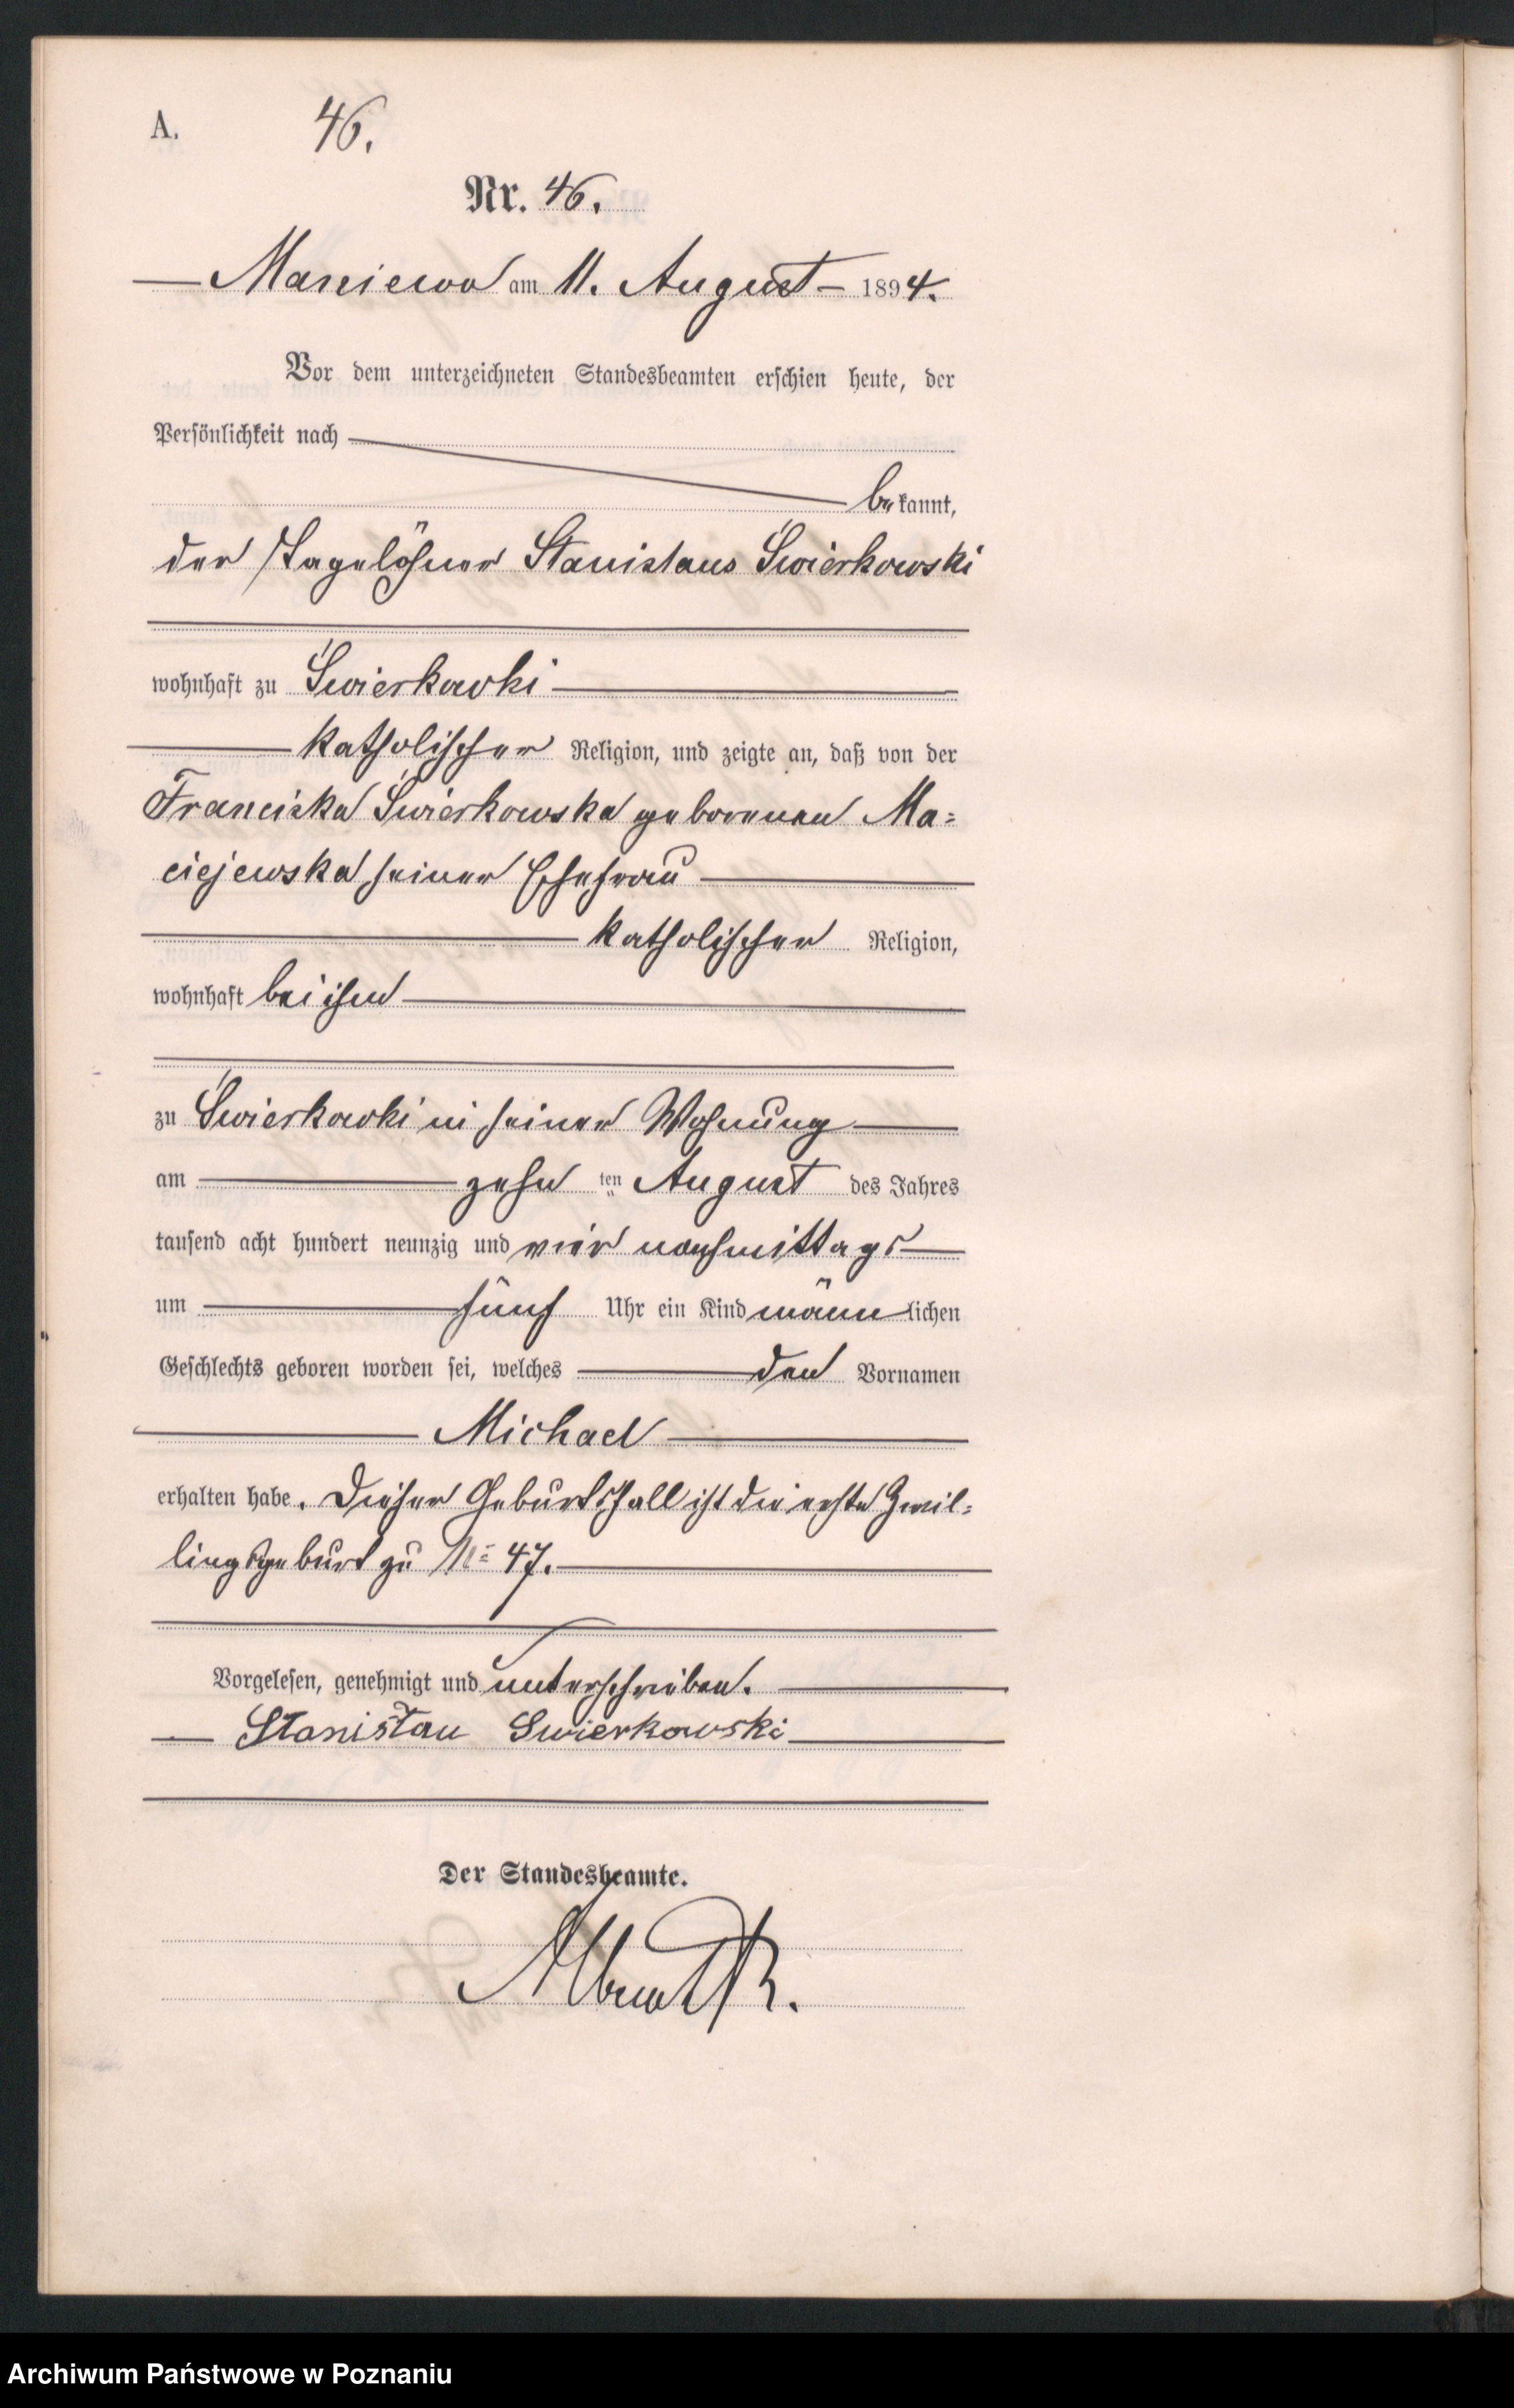 A. 46.
Nr. 46.
Maniewo am 11. August 1894.
Vor dem unterzeichneten Standesbeamten erschien heute, der
Persönlichkeit nach
bekannt,
der Tagelöhner Stanislaus Świerkowski
wohnhaft zu Świerkowki
katholischer Religion, und zeigte an, daß von der
Franciska Świerkowska geborenen Ma=
ciejewska seiner Ehefrau
katholischer Religion,
wohnhaft bei ihm
zu Świerkowki in seiner Wohnung
am zehnten August des Jahres
tausend acht hundert neunzig und vier nachmittags
um fünf Uhr ein Kind männlichen
Geschlechts geboren worden sei, welches den Vornamen
Michael
erhalten habe. Dieser Geburtsfall ist die erste Zwil=
lingsgeburt zu No 47.
Vorgelesen, genehmigt und unterschrieben.
Stanisław Swierkowski
Der Standesbeamte.
Archiwum Państwowe w Poznaniu